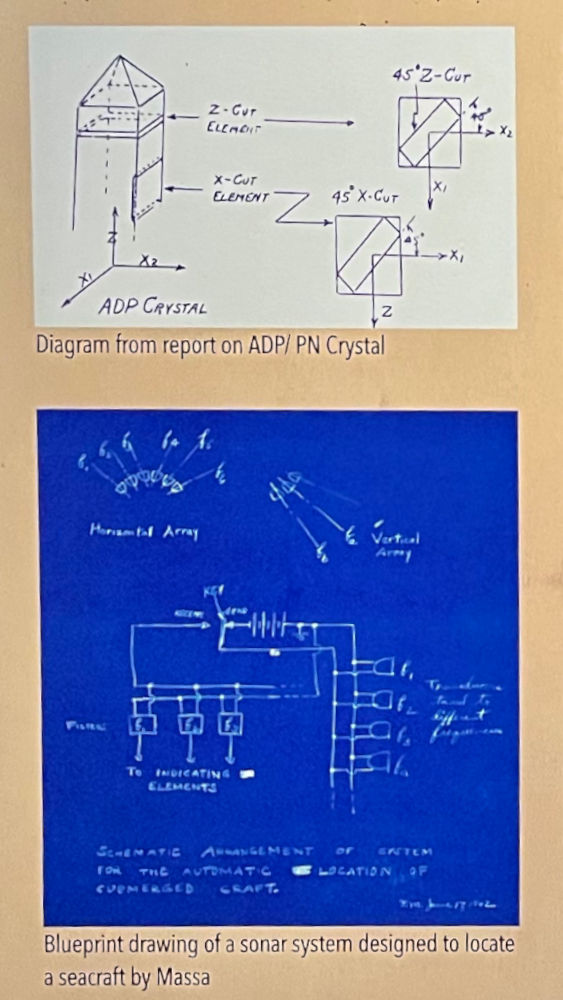 45° Z-CUT
Z-CUT
ELEMENT
45°
X2
X1
X-CUT
ELEMENT
45° X-CUT
45°
X1
Z
Z
X1
X2
ADP CRYSTAL
Diagram from report on ADP/ PN Crystal
Horizontal Array
Vertical
Array
KEY
SEND
f1
f2
f3
Transducers
tuned to
different
frequencies
FILTERS
TO INDICATING
ELEMENTS
SCHEMATIC ARRANGEMENT OF SYSTEM
FOR THE AUTOMATIC LOCATION OF
SUBMERGED CRAFT.
Blueprint drawing of a sonar system designed to locate
a seacraft by Massa